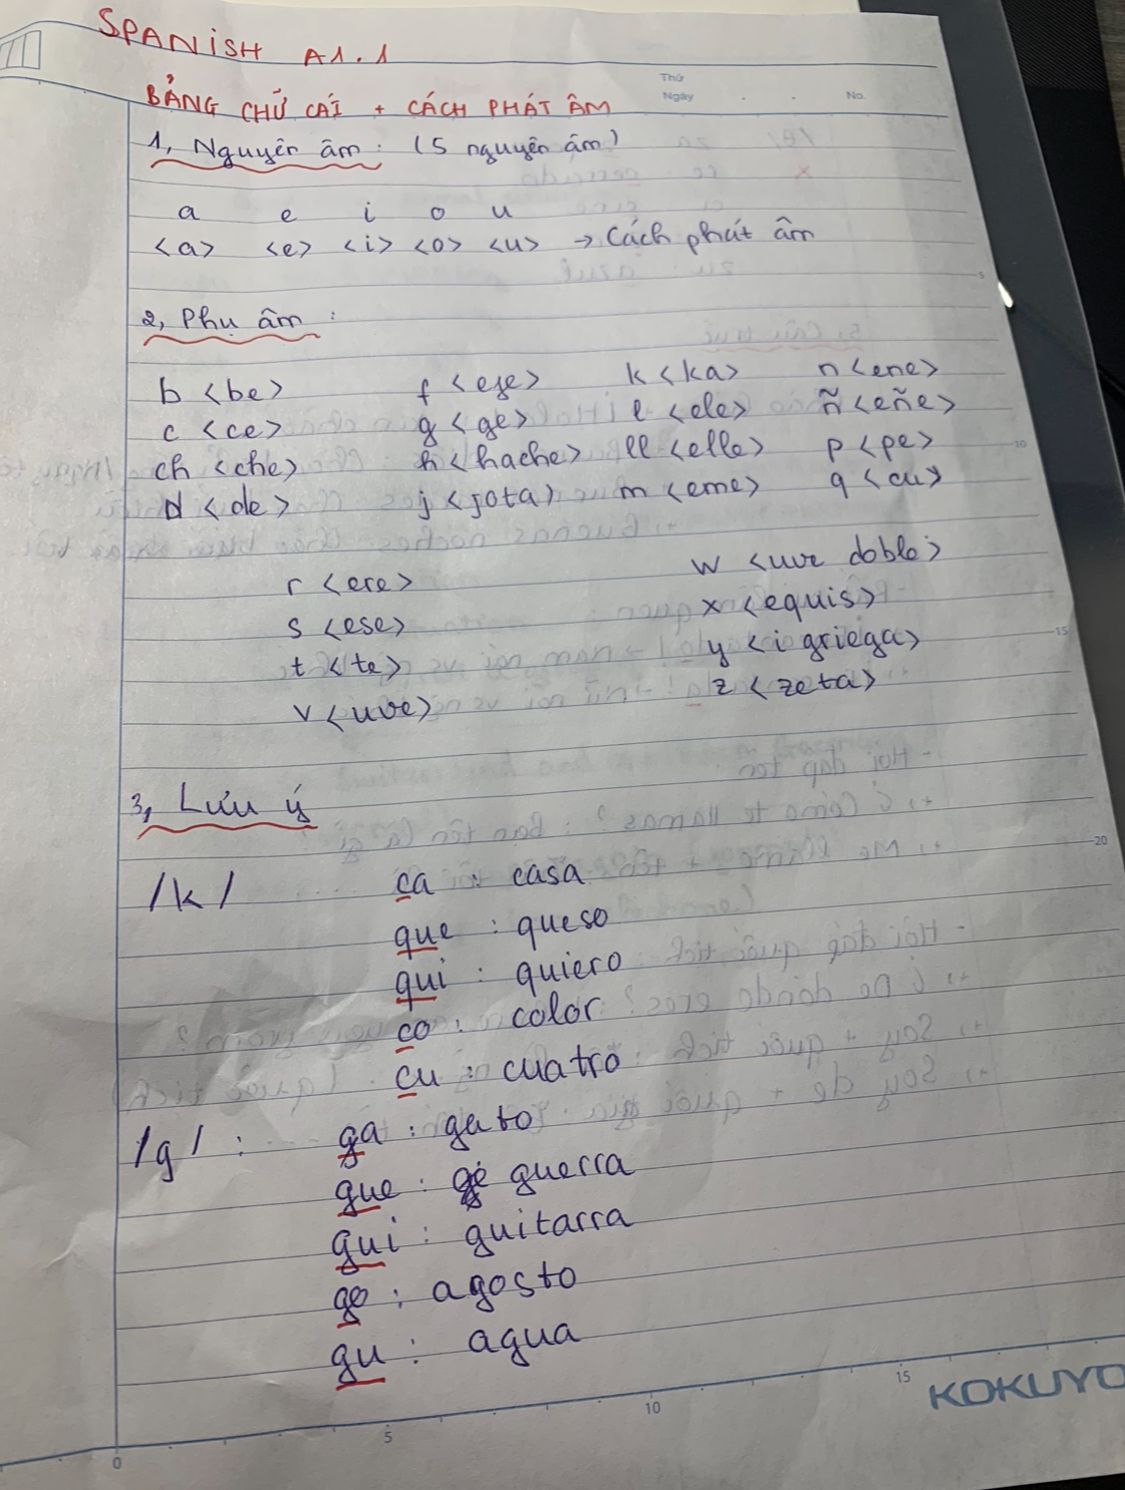 SPANISH A1.1
Thứ
Ngày . . No.
BẢNG CHỮ CÁI + CÁCH PHÁT ÂM
1, Nguyên âm : (5 nguyên âm)
a e i o u
<a> <e> <i> <o> <u> → Cách phát âm
2, Phụ âm :
b <be> f <efe> k <ka> n <ene>
c <ce> g <ge> l <ele> ñ <eñe>
ch <che> h <hache> ll <elle> p <pe>
d <de> j <jota> m <eme> q <cu>
r <ere> w <uve doble>
s <ese> x <equis>
t <te> y <i griega>
v <uve> z <zeta>
3, Lưu ý
/k/ ca : casa
que : queso
qui : quiero
co : color
cu : cuatro
/g/ : ga : gato
gue : guerra
gui : guitarra
go : agosto
gu : agua
5
10
15
20
0 5 10 15
KOKUYO